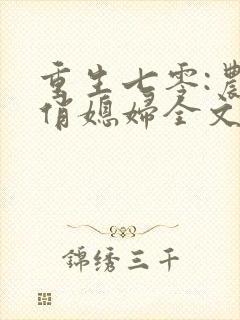 重生七零:農
俏媳婦全文
錦绣三千